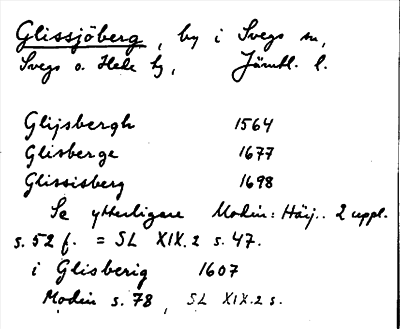 Glissjöberg, by i Svegs sn,
Svegs o. Hede tg, Jämtl. l.
Glijsbergh 1564
Glisberge 1677
Glissisberg 1698
Se ytterligare Modin: Härj.. 2 uppl.
s. 52 f. = SL XIX.2 s. 47.
i Glisberig 1607
Modin s. 78, SL XIX.2 s.